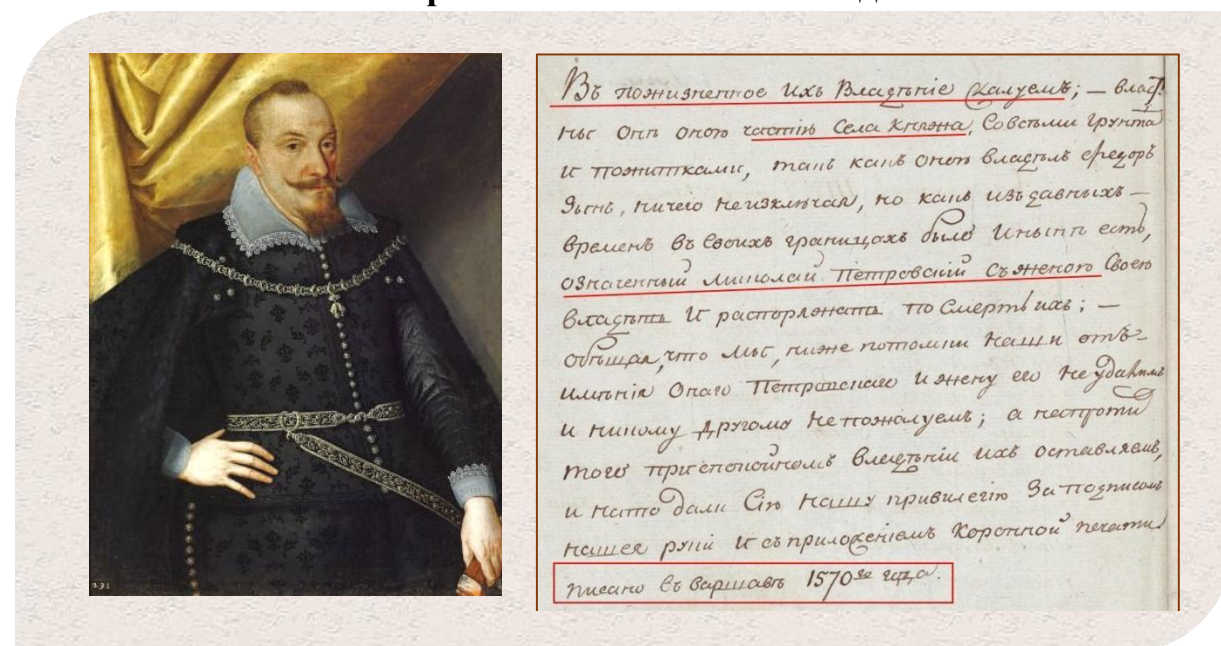 Въ пожизненное ихъ Владѣніе Жалуемъ; — влас
ны Онъ оною частію Села Княжа, Совсѣми грунта
и пожитками, такъ какъ оною владѣлъ Ѳедоръ
ничего неизключая, но какъ изъ давныхъ —
временъ въ Своихъ границахъ было и нынѣ есть,
означенный Миколай Петровскій Съ женою Своею
владѣть И распоряжать по Смерть ихъ; —
обѣщая, что Мы, ниже потомки Наши отъ-
имѣнія Онаго Петровскаго и жену его Не удалимъ
и никому другому Не пожалуемъ; а напротивъ
того при спокойномъ владѣніи ихъ оставляемъ,
и на то дали Сію Нашу привилегію За подписомъ
нашея руки И съ приложеніемъ Коронной печати
писано въ Варшавѣ 1570го года.
231